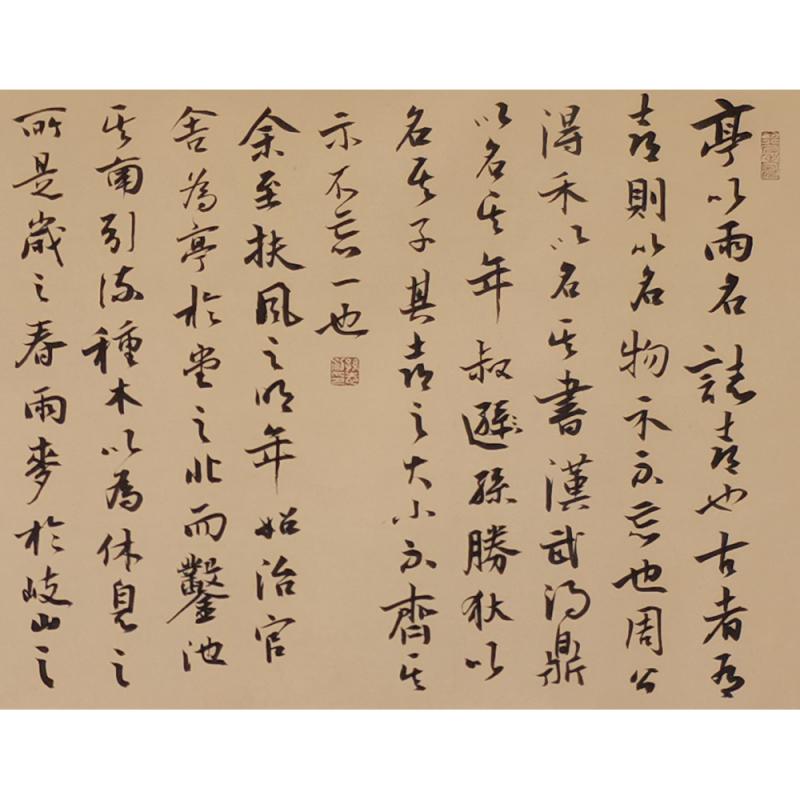 亭以雨名誌喜也古者有
喜則以名物示不忘也周公
得禾以名其書漢武得鼎
以名其年叔遜孫勝狄以
名其子其喜之大小不齊其
示不忘一也
余至扶風之明年始治官
舍為亭於堂之北而鑿池
其南引流種木以為休息之
所是歲之春雨麥於岐山之